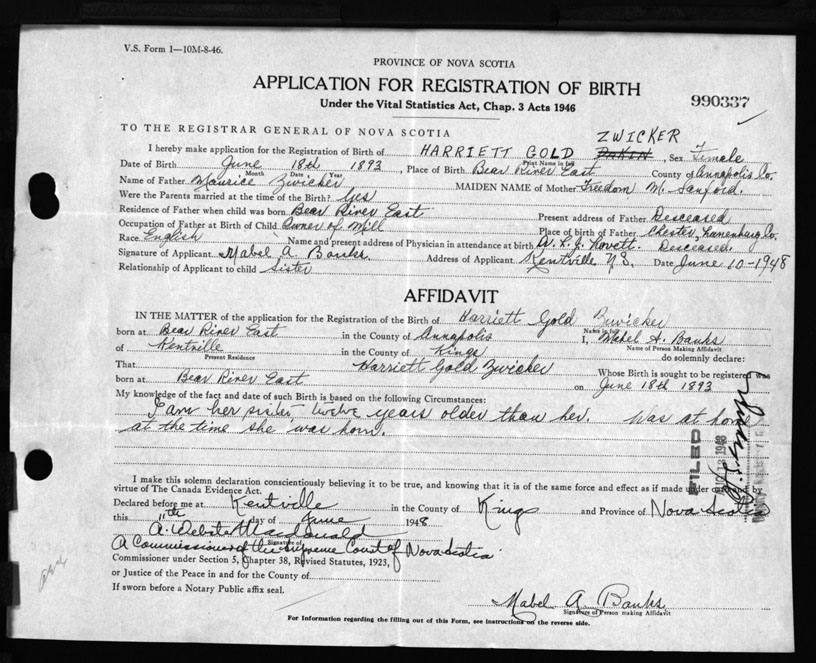 V.S. Form 1—10M-8-46.
PROVINCE OF NOVA SCOTIA
APPLICATION FOR REGISTRATION OF BIRTH
Under the Vital Statistics Act, Chap. 3 Acts 1946
990337
TO THE REGISTRAR GENERAL OF NOVA SCOTIA
ZWICKER
I hereby make application for the Registration of Birth of HARRIETT GOLD , Sex Female
Print Name in full
Date of Birth June 18th 1893 , Place of Birth Bear River East County of Annapolis Co.
Month Date Year
Name of Father Maurice Zwicker MAIDEN NAME of Mother Freedom M. Sanford.
Were the Parents married at the time of the Birth? Yes
Residence of Father when child was born Bear River East Present address of Father Desceased
Occupation of Father at Birth of Child Owner of Mill Place of birth of Father Chester, Lunenburg Co.
Race English Name and present address of Physician in attendance at birth Dr. L. J. Lovett. Desceased.
Signature of Applicant Mabel A. Banks Address of Applicant Kentville N.S. Date June 10-1948
Relationship of Applicant to child Sister
AFFIDAVIT
IN THE MATTER of the application for the Registration of the Birth of Harriett Gold Zwicker
Name in full
born at Bear River East in the County of Annapolis I, Mabel A. Banks
Name of Person Making Affidavit
of Kentville in the County of Kings do solemnly declare:
Present Residence
That Harriett Gold Zwicker Whose Birth is sought to be registered was
born at Bear River East on June 18th 1893
My knowledge of the fact and date of such Birth is based on the following Circumstances:
I am her sister twelve years older than her. Was at home
at the time she was born.
FILED
I make this solemn declaration conscientiously believing it to be true, and knowing that it is of the same force and effect as if made under oath and by
virtue of The Canada Evidence Act.
Declared before me at Kentville in the County of Kings and Province of Nova Scotia
this 11th day of June 1948
A. Webster Macdonald
Signature of
A Commissioner of the Supreme Court of Nova Scotia
Commissioner under Section 5, Chapter 38, Revised Statutes, 1923,
or Justice of the Peace in and for the County of
If sworn before a Notary Public affix seal.
Mabel A. Banks
Signature of Person making Affidavit
For Information regarding the filling out of this Form, see instructions on the reverse side.